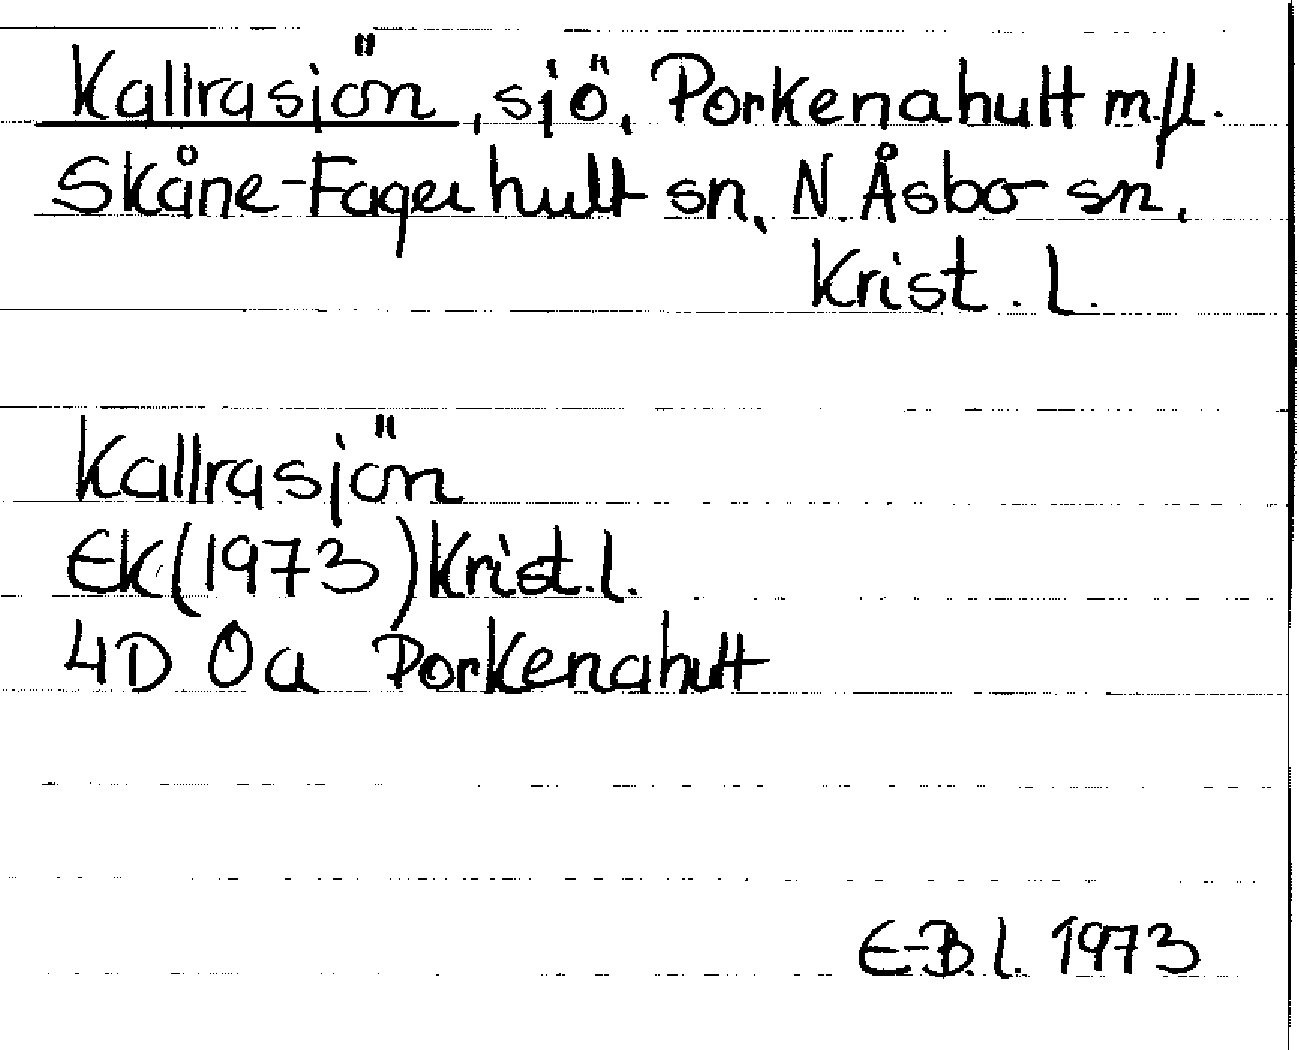 Kallrasjön, sjö, Porkenahult m.fl.
Skåne-Fagerhult sn, N. Åsbo sn.
Krist. l.
Kallrasjön
EK(1973)Krist.l.
4D 0a Porkenahult
E-B.l. 1973